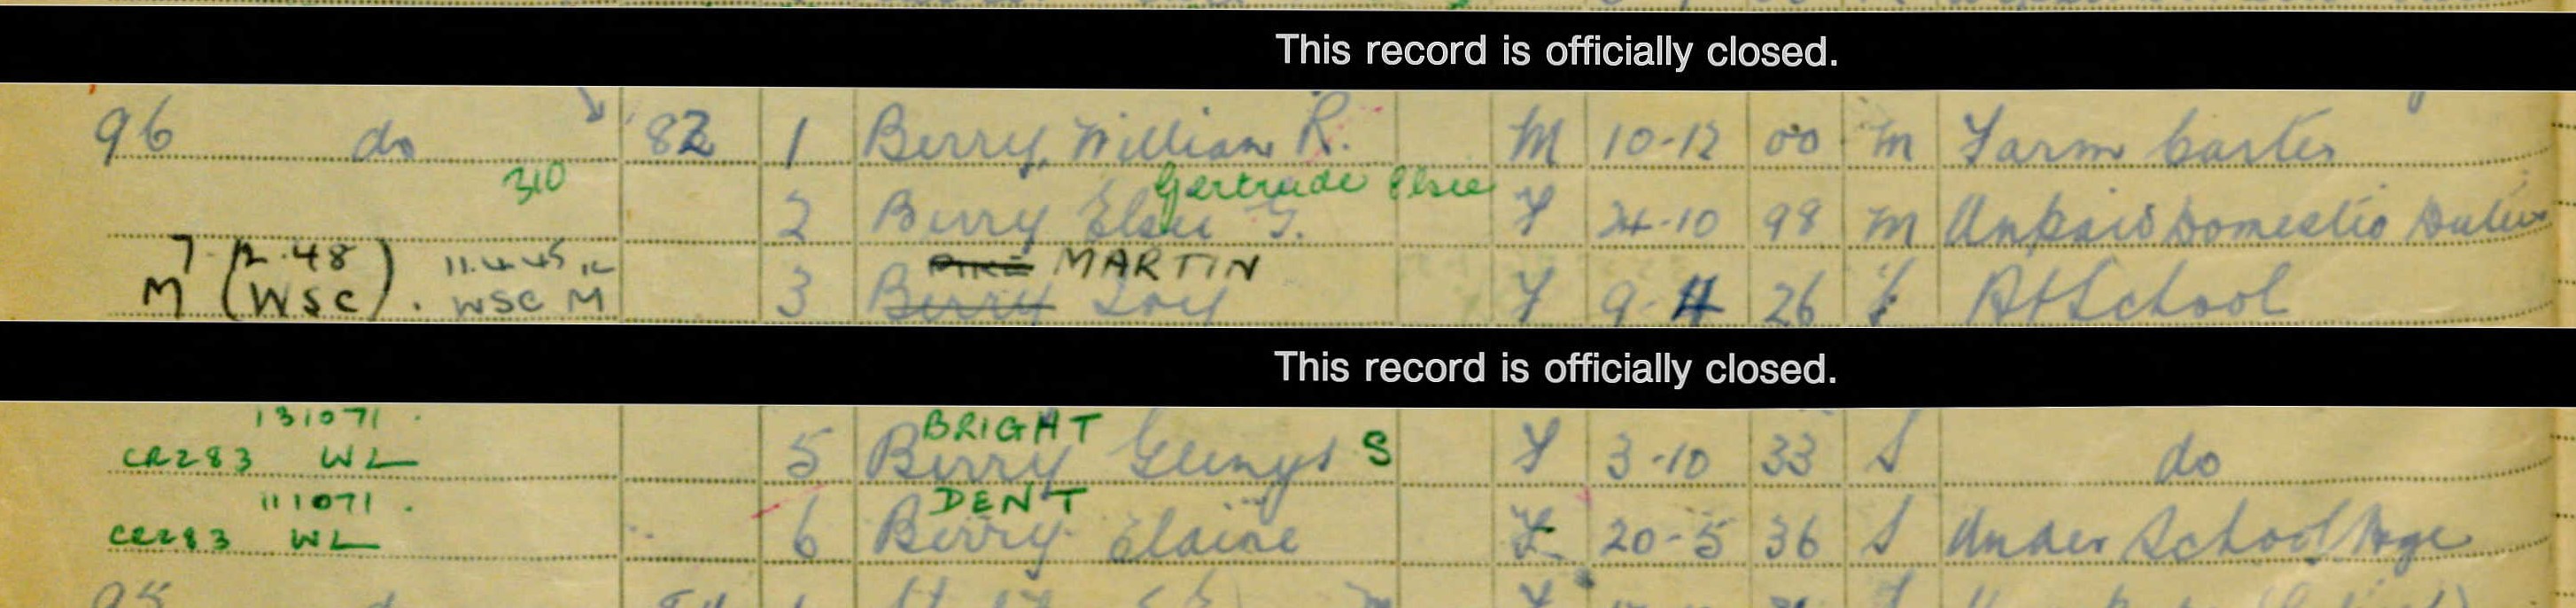 This record is officially closed.
96 do 82 1 Berry William R. M 10-12 00 M Farm Carter
310 Gertrude Elsie
2 Berry Elsie G. F 24-10 98 M Unpaid Domestic Duties
7.12.48 11.4.45 PIKE MARTIN
M (WSC). WSC M 3 Berry Joy F 9-4 26 S At School
This record is officially closed.
131071. BRIGHT
CR283 WL 5 Berry Glenys S F 3-10 33 S do
111071. DENT
CR283 WL 6 Berry Elaine F 20-5 36 S Under School Age